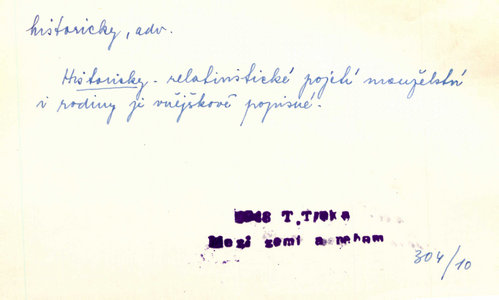 historicky, adv.
Historicky - relativistické pojetí manželství
i rodiny je vnějškově popisné.
1948 T. Trnka
Mezi zemí a nebem
304/10